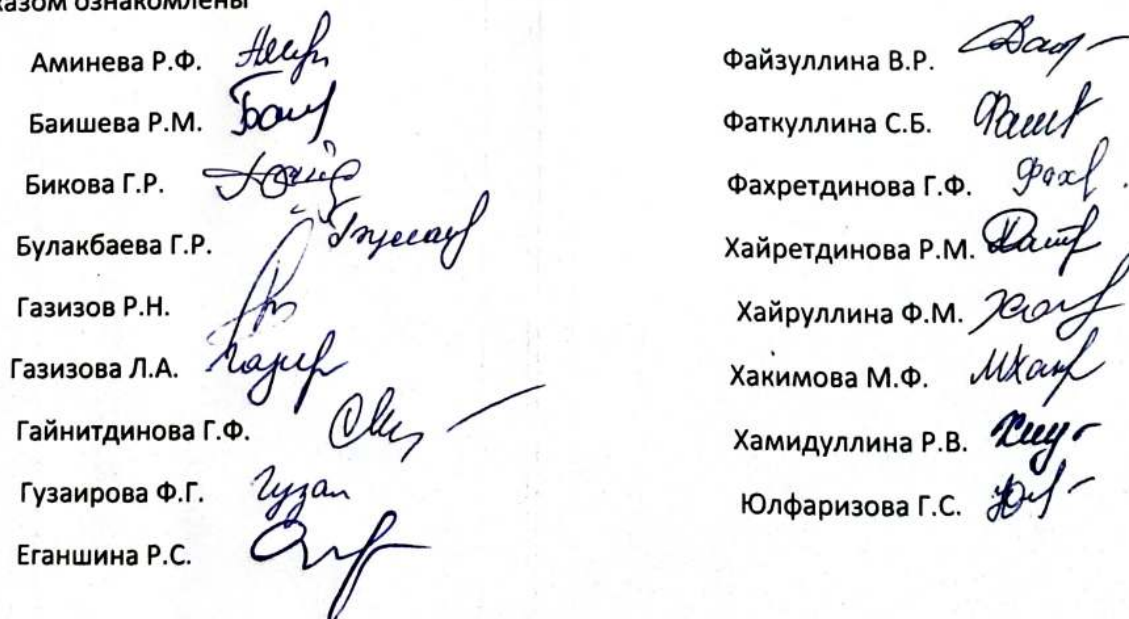 казом ознакомлены
Аминева Р.Ф.
Баишева Р.М.
Бикова Г.Р.
Булакбаева Г.Р.
Газизов Р.Н.
Газизова Л.А.
Гайнитдинова Г.Ф.
Гузаирова Ф.Г. Гузаи
Еганшина Р.С.
Файзуллина В.Р.
Фаткуллина С.Б.
Фахретдинова Г.Ф. Фах
Хайретдинова Р.М.
Хайруллина Ф.М.
Хакимова М.Ф.
Хамидуллина Р.В.
Юлфаризова Г.С.